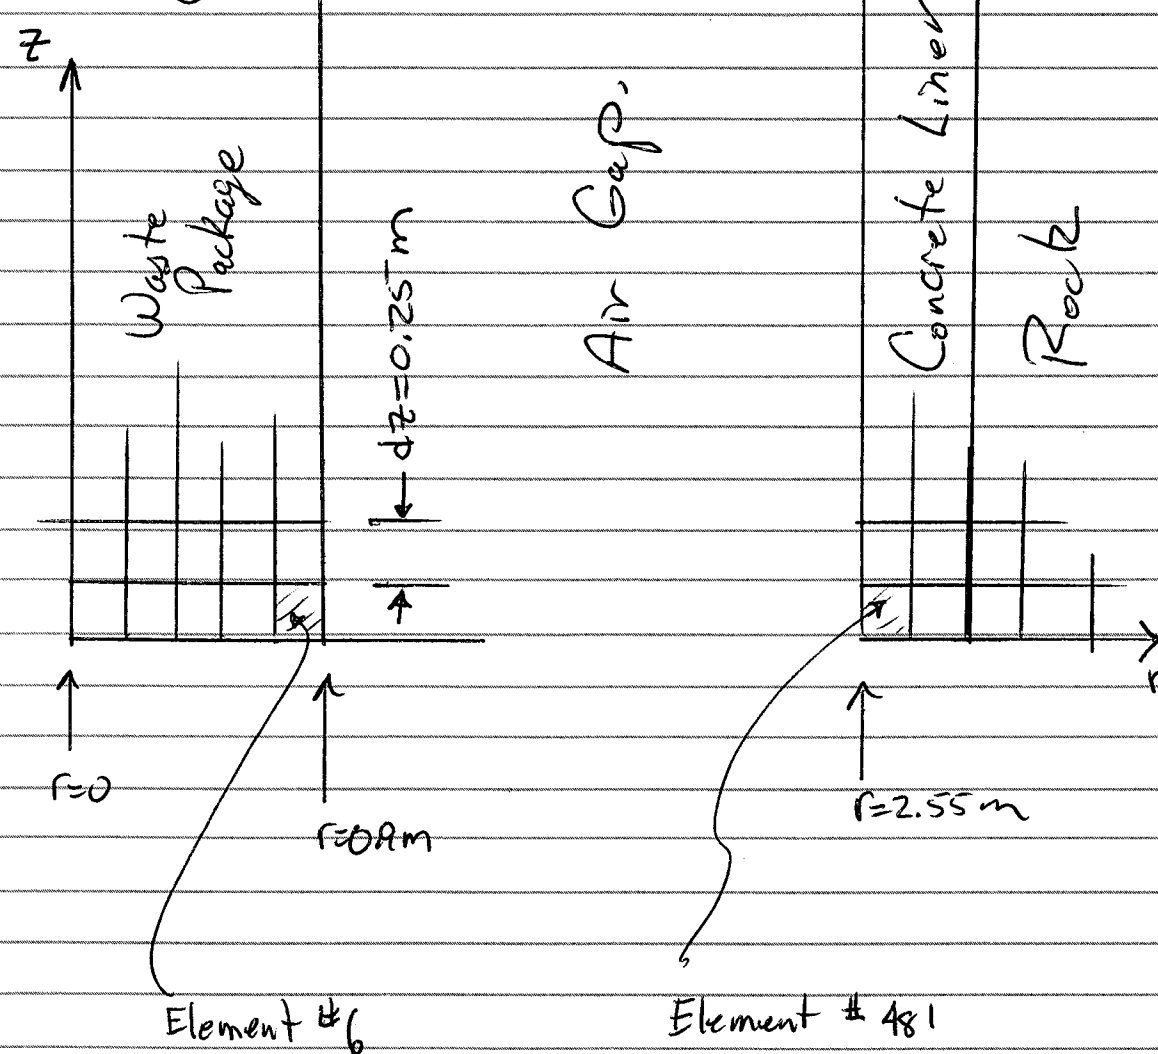 z
Waste
Package
dz=0.25m
Air Gap.
Concrete Liner
Rock
r
r=0
r=0.9m
r=2.55m
Element #6
Element # 481